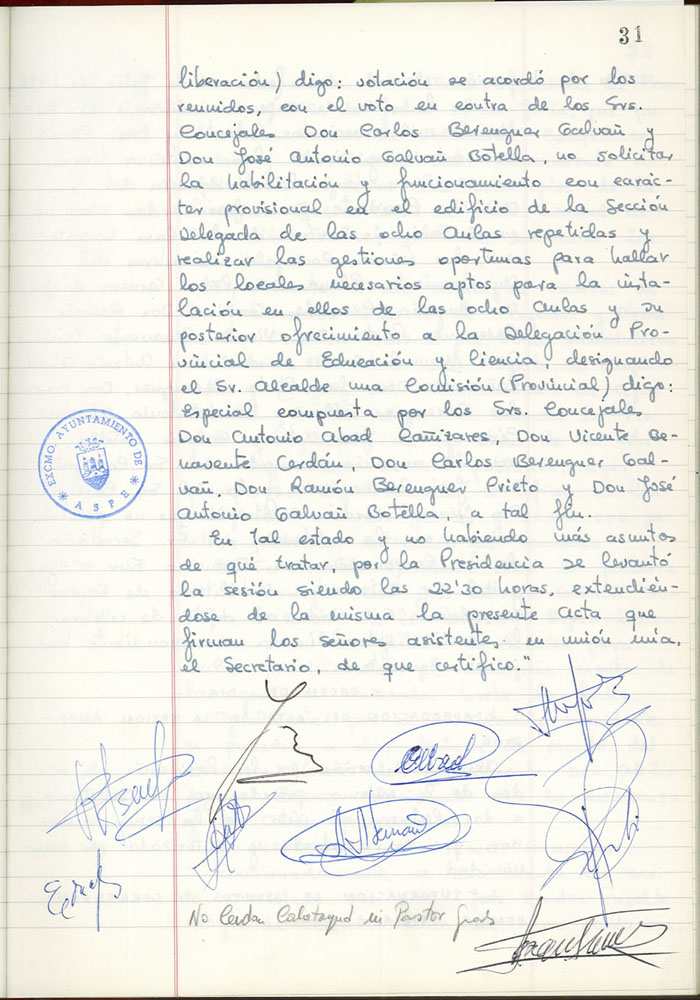 31
liberación) digo: votación se acordó por los
reunidos, con el voto en contra de los Srs.
Concejales Don Carlos Berenguer Galvañ y
Don José Antonio Galvañ Botella, no solicitar
la habilitación y funcionamiento con carác-
ter provisional en el edificio de la Sección
Delegada de las ocho Aulas repetidas y
realizar las gestiones oportunas para hallar
los locales necesarios aptos para la insta-
lación en ellos de las ocho Aulas y su
posterior ofrecimiento a la Delegación Pro-
vincial de Educación y Ciencia, designando
el Sr. Alcalde una Comisión (Provincial) digo:
Especial compuesta por los Srs. Concejales
Don Antonio Abad Cañizares, Don Vicente Be-
navente Cerdán, Don Carlos Berenguer Gal-
vañ, Don Ramón Berenguer Prieto y Don José
Antonio Galvañ Botella, a tal fin.
En tal estado y no habiendo más asuntos
de qué tratar, por la Presidencia se levantó
la sesión siendo las 22'30 horas, extendién-
dose de la misma la presente Acta que
firman los señores asistentes, en unión mía,
el Secretario, de que certifico."
EXCMO. AYUNTAMIENTO DE
ASPE
Abad
No Cerdan Calatayud ni Pastor